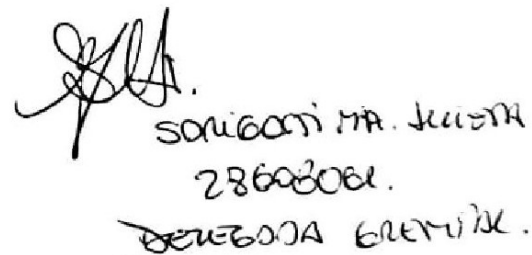 SORIGATTI MA. JULIETA
28608061.
DELEGADA GREMIAL.